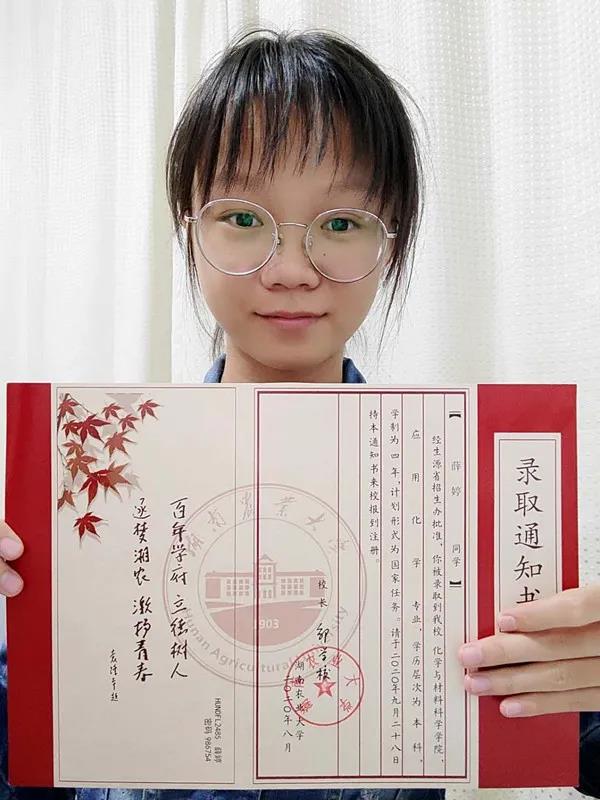 录取通知书
【 薛婷 同学 】
经生源省招生办批准，你被录取到我校 化学与材料科学学院，
应用化学 专业，学历层次为 本科，
学制为 四 年，计划形式为国家任务。请于二〇二〇年九月二十八日
持本通知书来校报到注册。
校长 邹学校
湖南农业大学
二〇二〇年八月
湖南农业大学
湖南农业大学
1903
Hunan Agricultural
百年学府 立德树人
逐梦湘农 激扬青春
袁隆平题
HUNDFL2485 薛婷
密码 986754